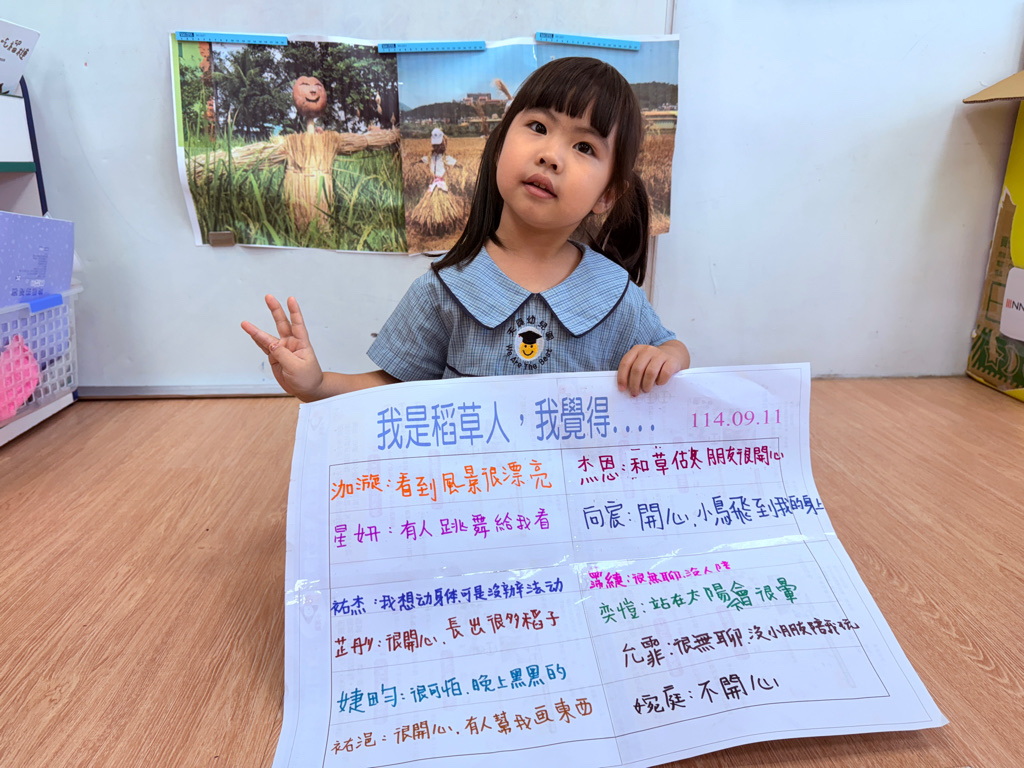 我是稻草人，我覺得....
114.09.11
泇漩：看到風景很漂亮
杰恩：和草估夾朋友很開心
星妍：有人跳舞給我看
向宸：開心、小鳥飛到我的身上
祐杰：我想动身体可是沒辦法动
很無聊、沒人陪
奕愷：站在太陽會很暈
芷彤：很開心、長出很多稻子
允霏：很無聊、沒小朋友陪我玩
婕畇：很可怕、晚上黑黑的
婉庭：不開心
祐浥：很開心、有人幫我画東西